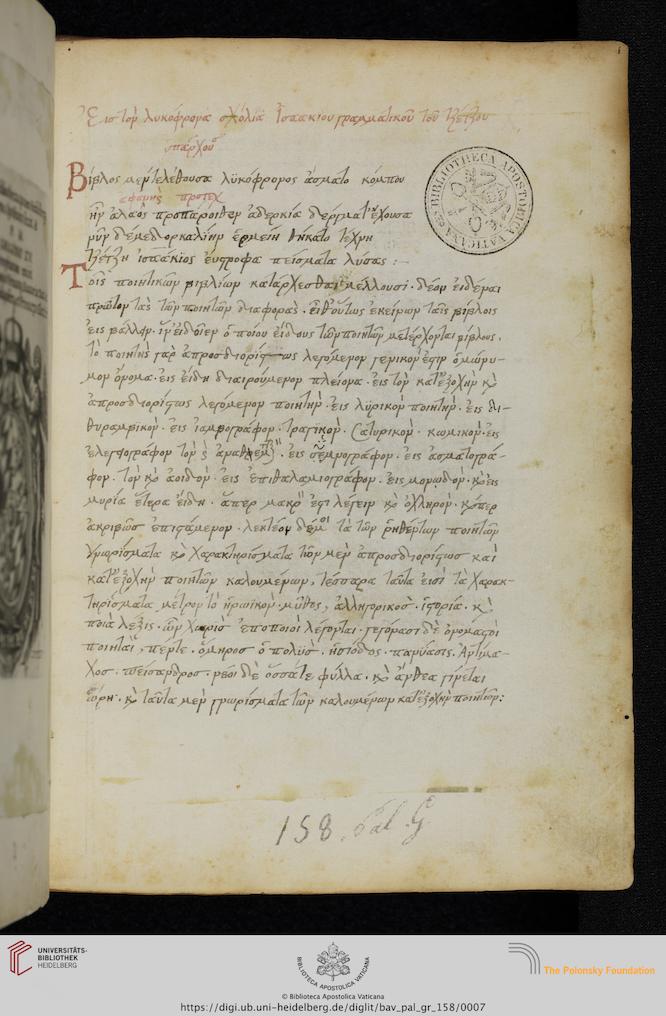 Εἰς τὸν λυκόφρονα σχόλια Ἰσαακίου γραμματικοῦ τοῦ τζέτζου
ὑπάρχου
Βίβλος μὲν τελέθουσα λυκόφρονος ἄσματο κόμπου
ἀφανὴς
ἣν ἀλαὸς προπάροιθεν ἀδερκία δέργματ' ἔχουσα
νῦν δ' ἑρμείην θήκατο τέχνη
τζέτζη ἰσαάκιος εὔστροφα πείσματα λύσας :
Τοῖς ποιητικῶν βιβλίων κατάρχεσθαι μέλλουσι · δέον εἰδέναι
πρῶτον τὰς τῶν ποιητῶν διαφοράς · εἶθ' οὕτως ἐκείνων ταῖς βίβλοις
εἰσβάλλειν · ἵν' εἰδοῖεν ὁποίου εἴδους τῶν ποιητῶν μετέρχονται βίβλους ·
τὸ ποιητὴς γὰρ ἀπροσδιορίστως λεγόμενον γενικὸν ἐστὶν ὁμώνυ-
μον ὄνομα · εἰς εἴδη διαιρούμενον πλείονα · εἰς τὸν κατ' ἐξοχὴν κὶ
ἀπροσδιορίστως λεγόμενον ποιητήν · εἰς λυρικὸν ποιητήν · εἰς δι-
θυραμβικόν · εἰς ἰαμβογράφον · τραγικόν · σατυρικόν · κωμικόν · εἰς
ἐλεγειογράφον τὸν κὶ · εἰς ὑμνογράφον · εἰς ἀσματογρά-
φον · τὸν κὶ ἀοιδόν · εἰς ἐπιθαλαμιογράφον · εἰς μονωδόν · κὶ εἰς
μυρία ἕτερα εἴδη · ἅπερ μακρὸν ἐστι λέγειν κὶ ὀχληρόν · κὶ περ
ἀκριβῶς ἐπιστάμενον · λεκτέον δέ μοι τὰ τῶν ῥηθέντων ποιητῶν
γνωρίσματα κὶ χαρακτηρίσματα τῶν μὲν ἀπροσδιορίστως καὶ
κατ' ἐξοχὴν ποιητῶν καλουμένων, τέσσαρα ταῦτα εἰσὶ τὰ χαρακ-
τηρίσματα μέτρον τὸ ἡρωϊκόν · μῦθος, ἀλληγορικός · ἱστορία · κὶ
ποιὰ λέξις · ὧν χωρὶς ἐποποιοὶ λέγονται · γεγόνασι δὲ ὀνομαστοὶ
ποιηταὶ, πέντε · ὅμηρος ὁ πολύς · ἡσίοδος · πανύασις. Ἀντίμα-
χος · πείσανδρος · νέοι δὲ ὅσσά τε φύλλα · κὶ ἄνθεα γίνεται
ὥρη · κὶ ταῦτα μὲν γνωρίσματα τῶν καλουμένων κατ' ἐξοχὴν ποιητῶν :
158. Pal. G.
BIBLIOTHECA APOSTOLICA VATICANA
UNIVERSITÄTS-
BIBLIOTHEK
HEIDELBERG
BIBLIOTECA APOSTOLICA VATICANA
The Polonsky Foundation
© Biblioteca Apostolica Vaticana
https://digi.ub.uni-heidelberg.de/diglit/bav_pal_gr_158/0007